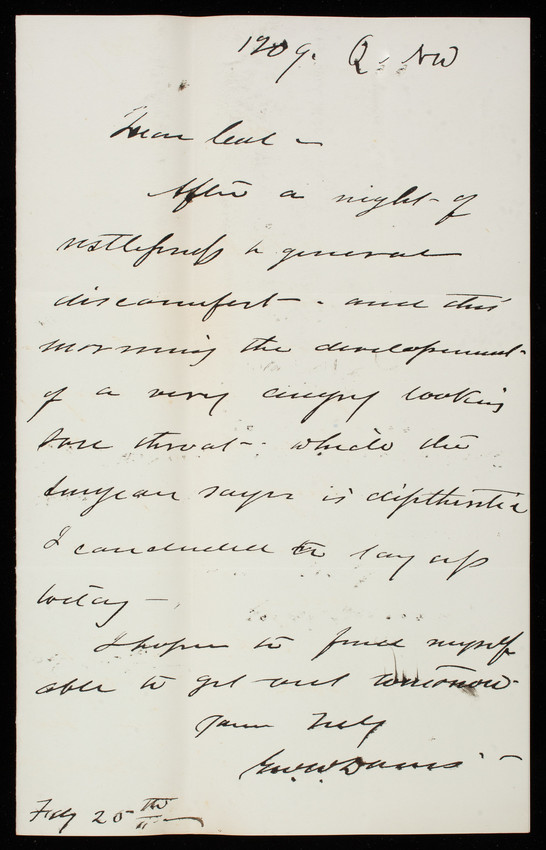 1209. Q. NW
Dear Col -
After a night of
restlessness & general
discomfort - and this
morning the development
of a very angry looking
sore throat - which the
surgeon says is diptheritic
I concluded to lay up
today -
I hope to find myself
able to get out tomorrow -
Yours truly
Geo W Davis -
Feby 25th